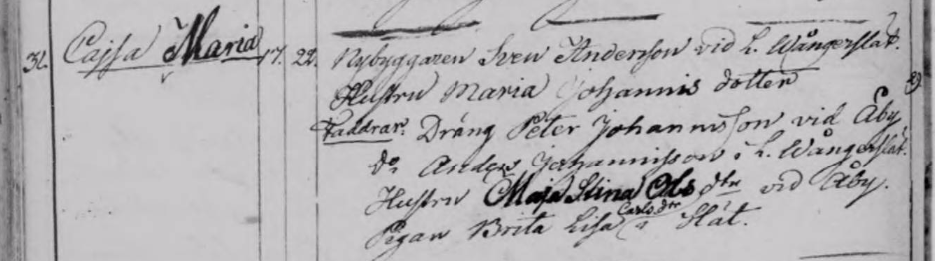 31. Cajsa Maria 17. 22. Nybyggaren Sven Andersson vid L. Wångerslät.
Hustru Maria Johannis dotter 29.
Faddrar. Dräng Peter Johannisson vid Åby
do Anders Johannisson i L. Wångerslät.
Hustru Maja Stina Ols dtr vid Åby.
Pigan Brita Lisa Carls dtr i Slät.